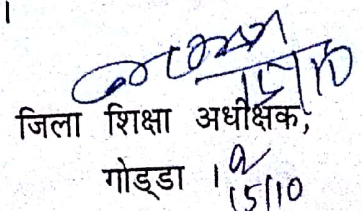 15/10
जिला शिक्षा अधीक्षक,
गोड्डा ।
15/10